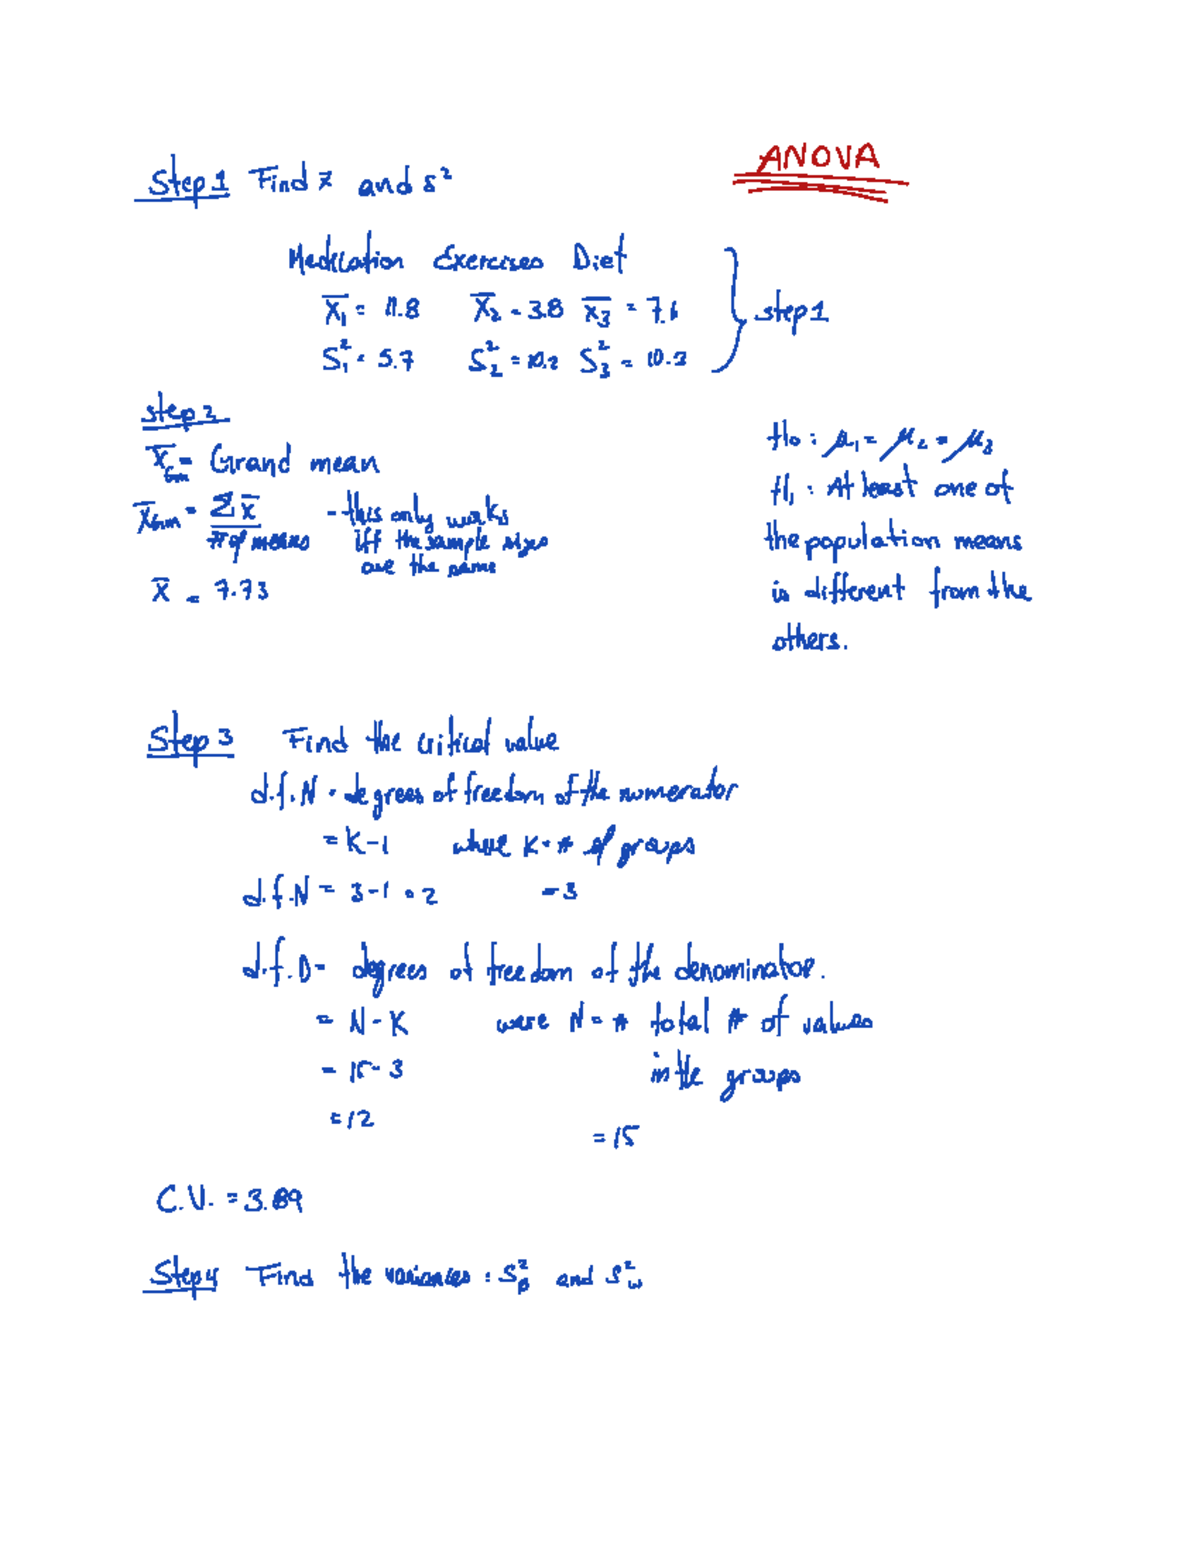 ANOVA
Step 1 Find x̄ and s²
Medication Exercises Diet
X̄₁ = 11.8 X̄₂ = 3.8 X̄₃ = 7.6
S₁² = 5.7 S₂² = 10.2 S₃² = 10.3
step 1
step 2
X̄GM = Grand mean
X̄GM = Σx̄ / # of means - this only works
iff the sample sizes
are the same
X̄ = 7.73
H₀ : μ₁ = μ₂ = μ₃
H₁ : At least one of
the population means
is different from the
others.
Step 3 Find the critical value
d.f.N = degrees of freedom of the numerator
= K-1 where K = # of groups
d.f.N = 3-1 = 2 = 3
d.f.D = degrees of freedom of the denominator.
= N - K were N = # total # of values
= 15 - 3 in the groups
= 12
= 15
C.V. = 3.89
Step 4 Find the variances : S²B and S²w